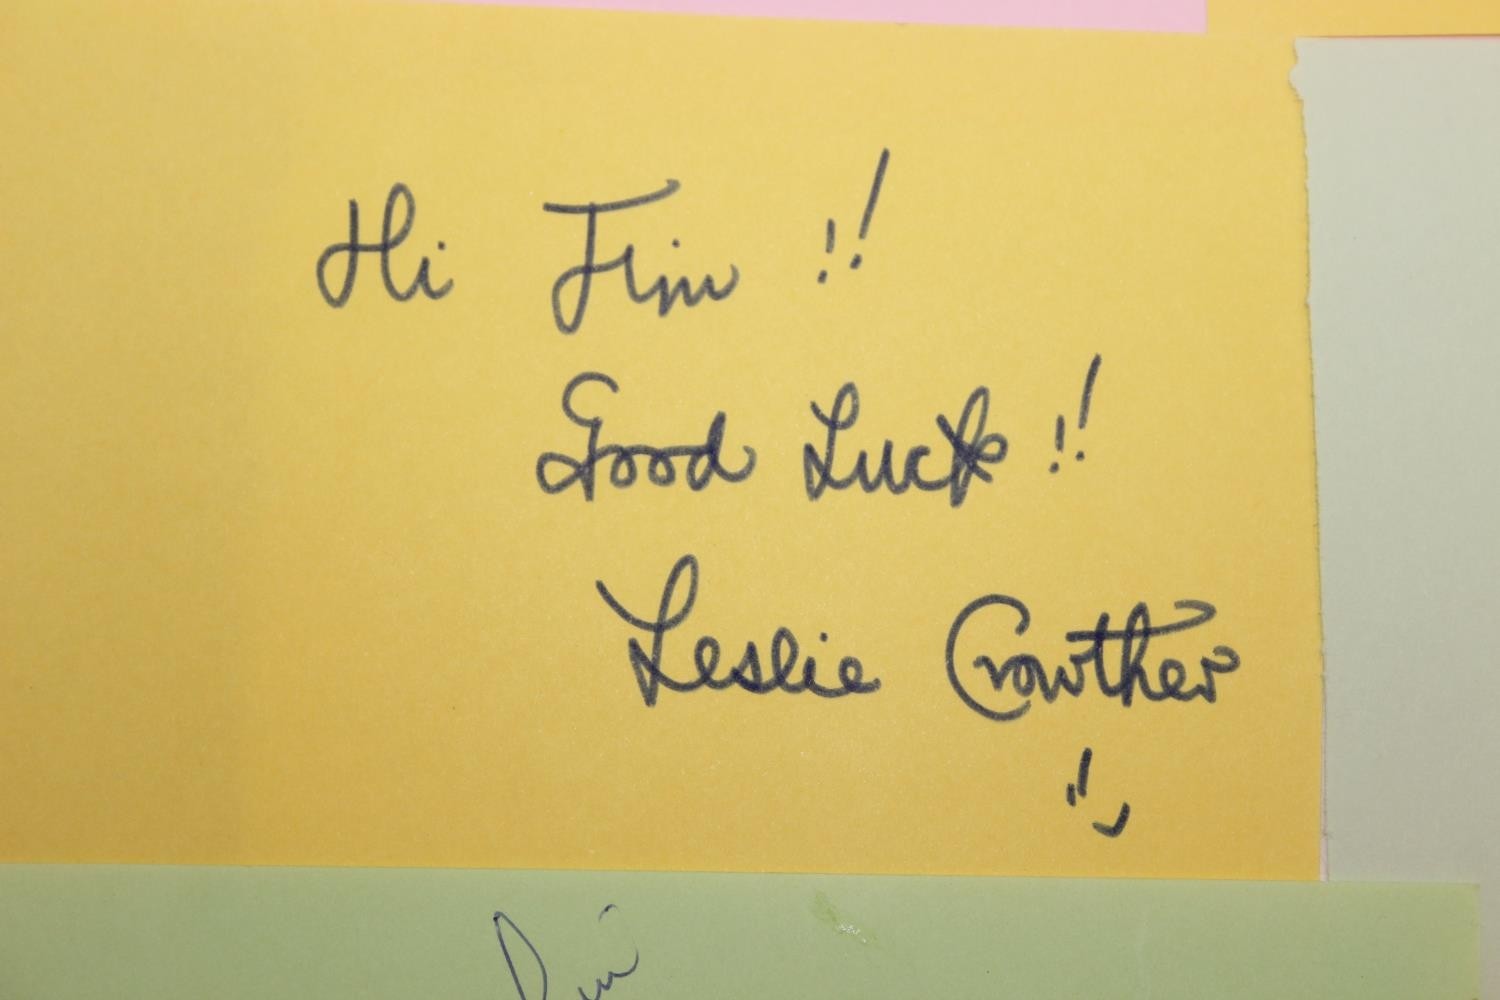 Hi Jim !!
Good Luck !!
Leslie Crowther